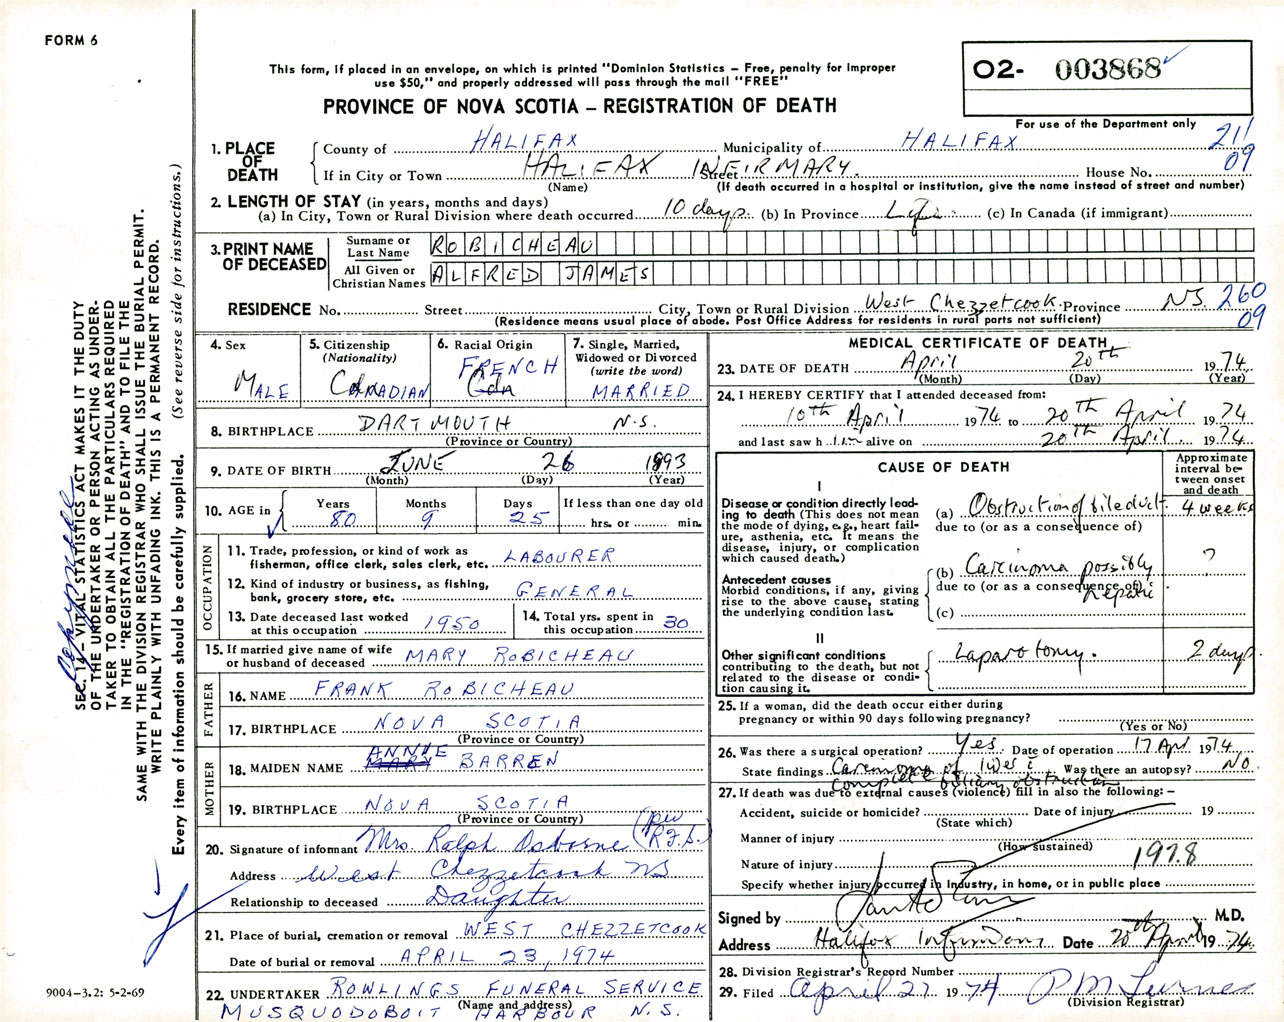 FORM 6
This form, if placed in an envelope, on which is printed "Dominion Statistics – Free, penalty for improper
use $50," and properly addressed will pass through the mail "FREE"
PROVINCE OF NOVA SCOTIA – REGISTRATION OF DEATH
O2- 003868
For use of the Department only
211
09
1. PLACE OF DEATH
County of HALIFAX Municipality of HALIFAX
If in City or Town HALIFAX INFIRMARY. Street House No.
(Name) (If death occurred in a hospital or institution, give the name instead of street and number)
2. LENGTH OF STAY (in years, months and days)
(a) In City, Town or Rural Division where death occurred 10 days. (b) In Province Life (c) In Canada (if immigrant)
3. PRINT NAME OF DECEASED
Surname or Last Name ROBICHEAU
All Given or Christian Names ALFRED JAMES
RESIDENCE No. Street City, Town or Rural Division West Chezzetcook Province NS 260
(Residence means usual place of abode. Post Office Address for residents in rural parts not sufficient) 09
4. Sex
MALE
5. Citizenship
(Nationality)
CANADIAN
6. Racial Origin
FRENCH
Cdn
7. Single, Married,
Widowed or Divorced
(write the word)
MARRIED
8. BIRTHPLACE DARTMOUTH N.S.
(Province or Country)
9. DATE OF BIRTH JUNE 26 1893
(Month) (Day) (Year)
10. AGE in
Years Months Days If less than one day old
80 9 25 hrs. or min.
OCCUPATION
11. Trade, profession, or kind of work as
fisherman, office clerk, sales clerk, etc. LABOURER
12. Kind of industry or business, as fishing,
bank, grocery store, etc. GENERAL
13. Date deceased last worked
at this occupation 1950
14. Total yrs. spent in
this occupation 30
15. If married give name of wife
or husband of deceased MARY ROBICHEAU
FATHER
16. NAME FRANK ROBICHEAU
17. BIRTHPLACE NOVA SCOTIA
(Province or Country)
MOTHER
18. MAIDEN NAME ANNIE BARREN
19. BIRTHPLACE NOVA SCOTIA
(Province or Country)
20. Signature of informant Mrs. Ralph Osborne (per R.J.S.)
Address West Chezzetcook NS
Relationship to deceased Daughter
21. Place of burial, cremation or removal WEST CHEZZETCOOK
Date of burial or removal APRIL 23, 1974
22. UNDERTAKER ROWLINGS FUNERAL SERVICE
(Name and address)
MUSQUODOBOIT HARBOUR N.S.
MEDICAL CERTIFICATE OF DEATH
23. DATE OF DEATH April 20th 1974
(Month) (Day) (Year)
24. I HEREBY CERTIFY that I attended deceased from:
10th April 1974 to 20th April 1974
and last saw him alive on 20th April 1974
CAUSE OF DEATH
Approximate
interval be-
tween onset
and death
I
Disease or condition directly lead-
ing to death (This does not mean
the mode of dying, e.g., heart fail-
ure, asthenia, etc. It means the
disease, injury, or complication
which caused death.)
(a) Obstruction of bile duct. 4 weeks
due to (or as a consequence of)
Antecedent causes
Morbid conditions, if any, giving
rise to the above cause, stating
the underlying condition last.
(b) Carcinoma possibly ?
due to (or as a consequence of)
hepatic
(c)
II
Other significant conditions
contributing to the death, but not
related to the disease or condi-
tion causing it.
Laparotomy. 2 days.
25. If a woman, did the death occur either during
pregnancy or within 90 days following pregnancy?
(Yes or No)
26. Was there a surgical operation? Yes. Date of operation 17 Apl 1974
State findings Carcinoma of liver Was there an autopsy? No.
complete biliary obstruction
27. If death was due to external causes (violence) fill in also the following: –
Accident, suicide or homicide? Date of injury 19
(State which)
Manner of injury
(How sustained)
Nature of injury 197.8
Specify whether injury occurred in Industry, in home, or in public place
Signed by M.D.
Address Halifax Infirmary Date 20th April 1974.
28. Division Registrar's Record Number
29. Filed April 27 1974 P M Turner
(Division Registrar)
SEC. 14 – VITAL STATISTICS ACT MAKES IT THE DUTY
OF THE UNDERTAKER OR PERSON ACTING AS UNDER-
TAKER TO OBTAIN ALL THE PARTICULARS REQUIRED
IN THE "REGISTRATION OF DEATH" AND TO FILE THE
SAME WITH THE DIVISION REGISTRAR WHO SHALL ISSUE THE BURIAL PERMIT.
WRITE PLAINLY WITH UNFADING INK. THIS IS A PERMANENT RECORD.
Every item of information should be carefully supplied. (See reverse side for instructions.)
9004–3.2: 5-2-69